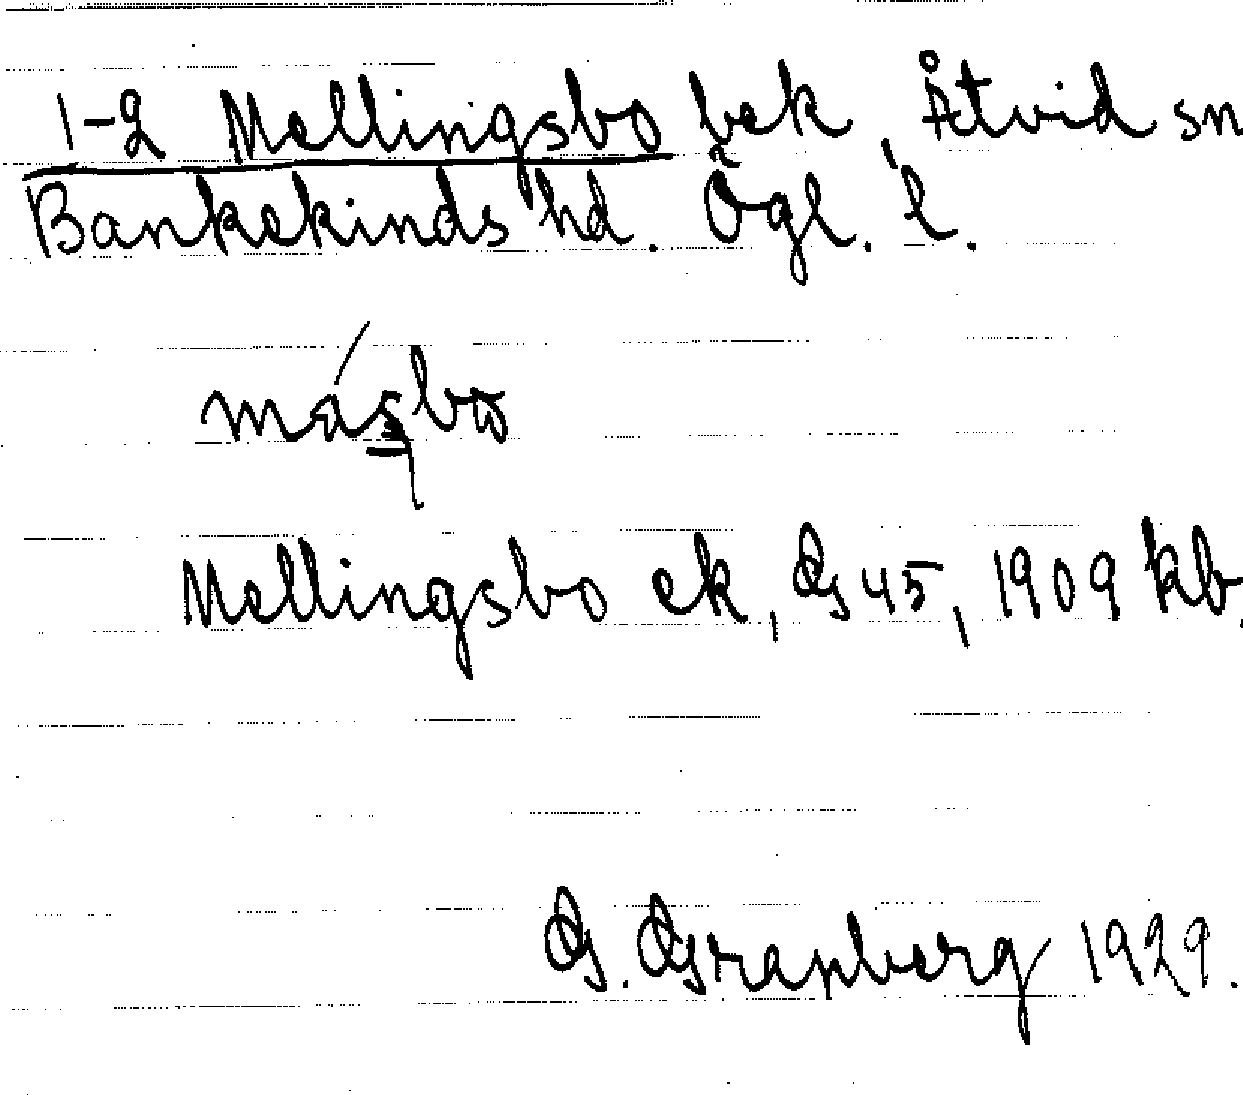 1-2 Mellingsbo bek, Åtvid sn
Bankekinds hd. Ögl. l.
Mellingsbo ek, GS 45, 1909 kb.
G. Granberg 1929.